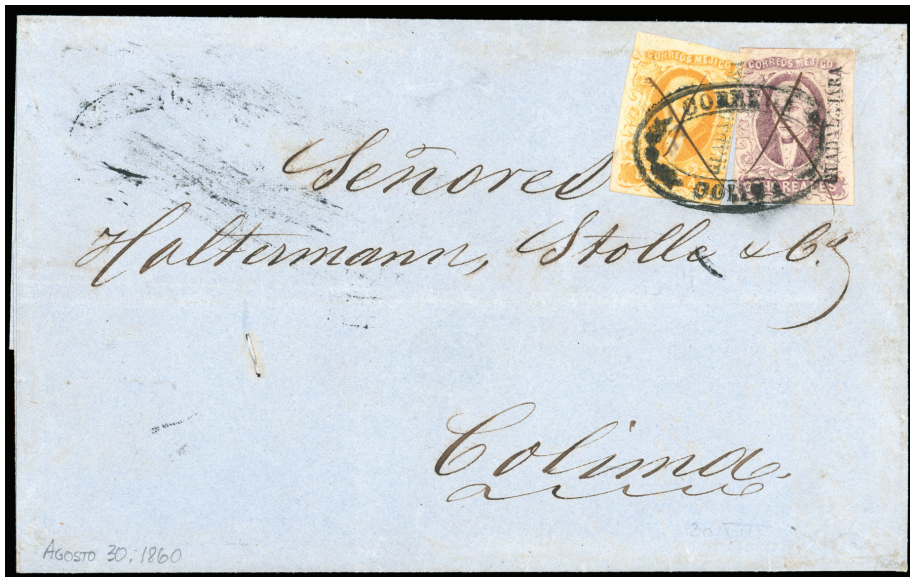 CORREOS MEJICO
CORREOS MEJICO
GUADALAJARA
CORREOS
COLIMA
REALES
Señores
Haltermann, Stolle & Ca
Colima.
AGOSTO 30, 1860